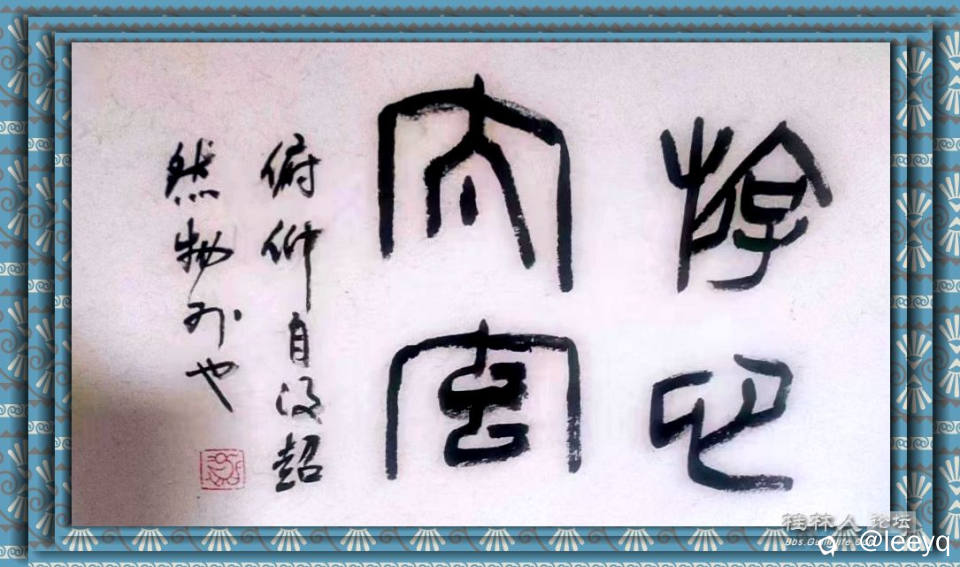 游心
太玄
俯仰自得超
然物外也
桂林人论坛
@leeyq